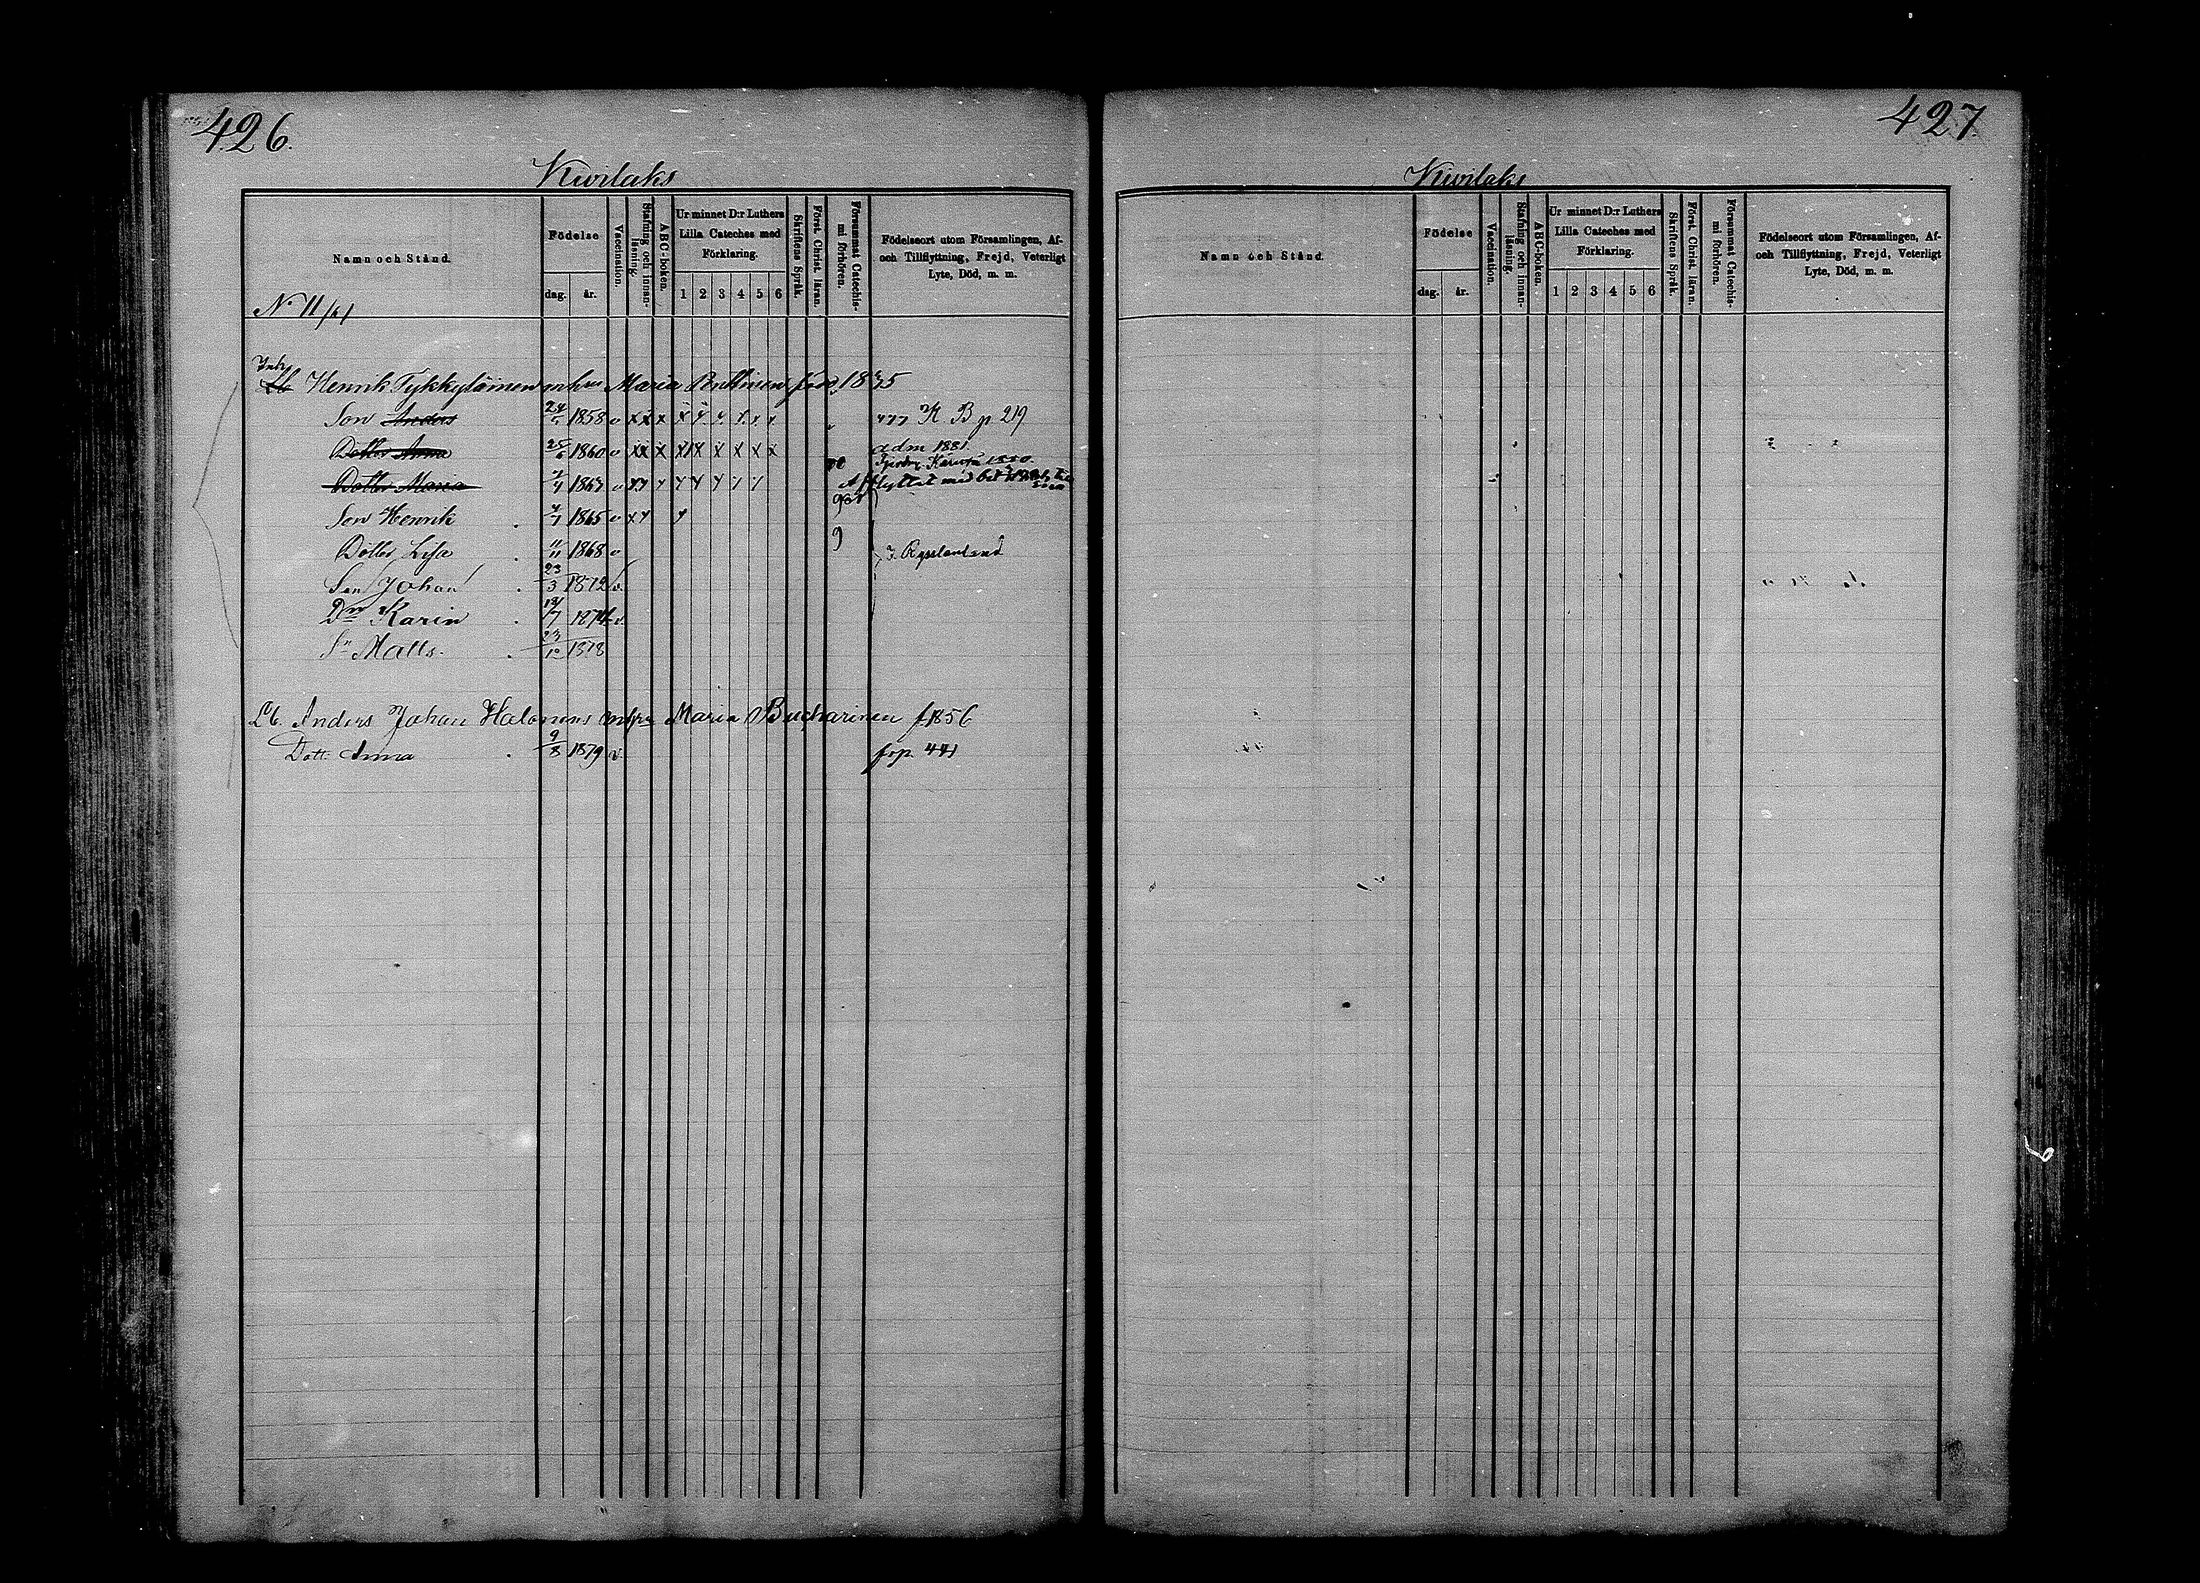 426.
Kivilaks
Namn och Stånd.
Födelse
dag. år.
Vaccination.
Stafning och innanläsning.
ABC-boken.
Ur minnet D:r Luthers Lilla Cateches med Förklaring.
1 2 3 4 5 6
Skriftens Språk.
Först. Christ. läran.
Försummat Catechismi förhören.
Födelseort utom Församlingen, Af- och Tillflyttning, Frejd, Veterligt Lyte, Död, m. m.
No 11/61
Lb Henrik Tykkyläinen enka Maria Penttinen född 1835
Son Anders 24/5 1858 v x x x K B p 219
Dotter Anna 25/6 1860 v adm 1881
Dotter Maria 1863 v Afflyttat med bet
Son Henrik 4/7 1865 v
Dotter Lisa 11/11 1868 v I Rysslanland
Son Johan 23/3 1872 v.
Dr Karin 19/7 1874 v.
Sn Matts. 23/10 1878
Lb. Anders Johan Halonens enka Maria Bucharinen f. 1856
Dott. Anna 9/8 1879 v. fr p. 441
427
Kivilaks
Namn och Stånd.
Födelse
dag. år.
Vaccination.
Stafning och innanläsning.
ABC-boken.
Ur minnet D:r Luthers Lilla Cateches med Förklaring.
1 2 3 4 5 6
Skriftens Språk.
Först. Christ. läran.
Försummat Catechismi förhören.
Födelseort utom Församlingen, Af- och Tillflyttning, Frejd, Veterligt Lyte, Död, m. m.